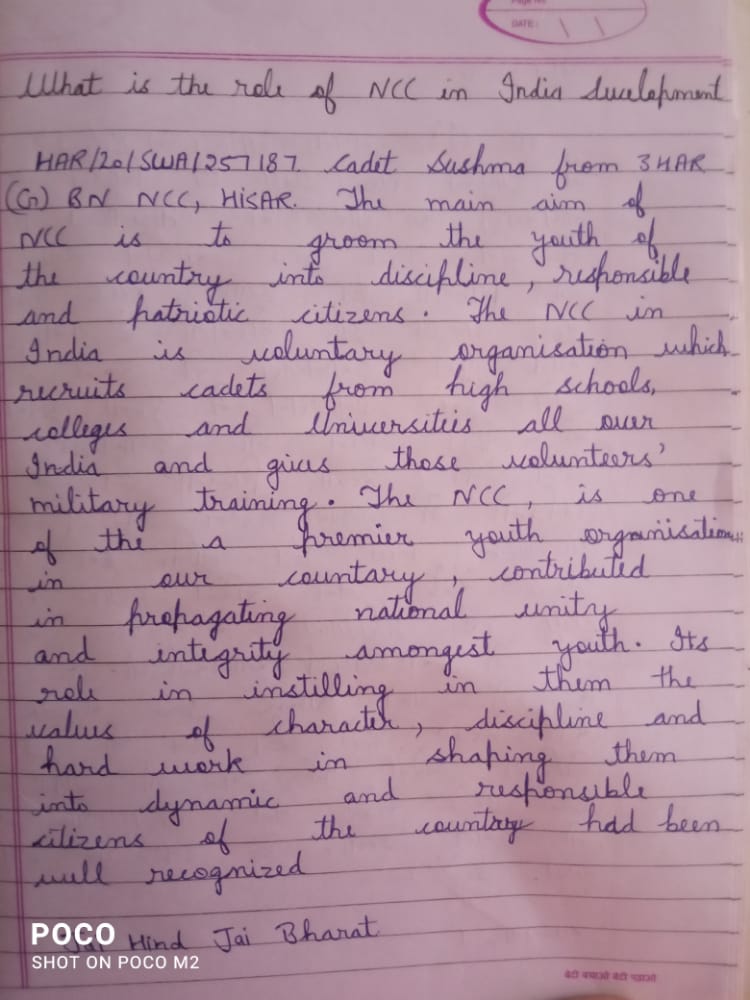 Page No.
DATE:
What is the role of NCC in India development
HAR/20/SWA/257187. Cadet Sushma from 3HAR
(G) BN NCC, HISAR. The main aim of
NCC is to groom the youth of
the country into discipline, responsible
and patriotic citizens. The NCC in
India is voluntary organisation which
recruits cadets from high schools,
colleges and Universities all over
India and gives those volunteers'
military training. The NCC, is one
of the a premier youth organisation
in our countary, contributed
in propagating national unity
and integrity amongest youth. Its
role in instilling in them the
values of character, discipline and
hard work in shaping them
into dynamic and responsible
citizens of the country had been
well recognized
Jai Hind Jai Bharat
POCO
SHOT ON POCO M2
बेटी बचाओ बेटी पढ़ाओ